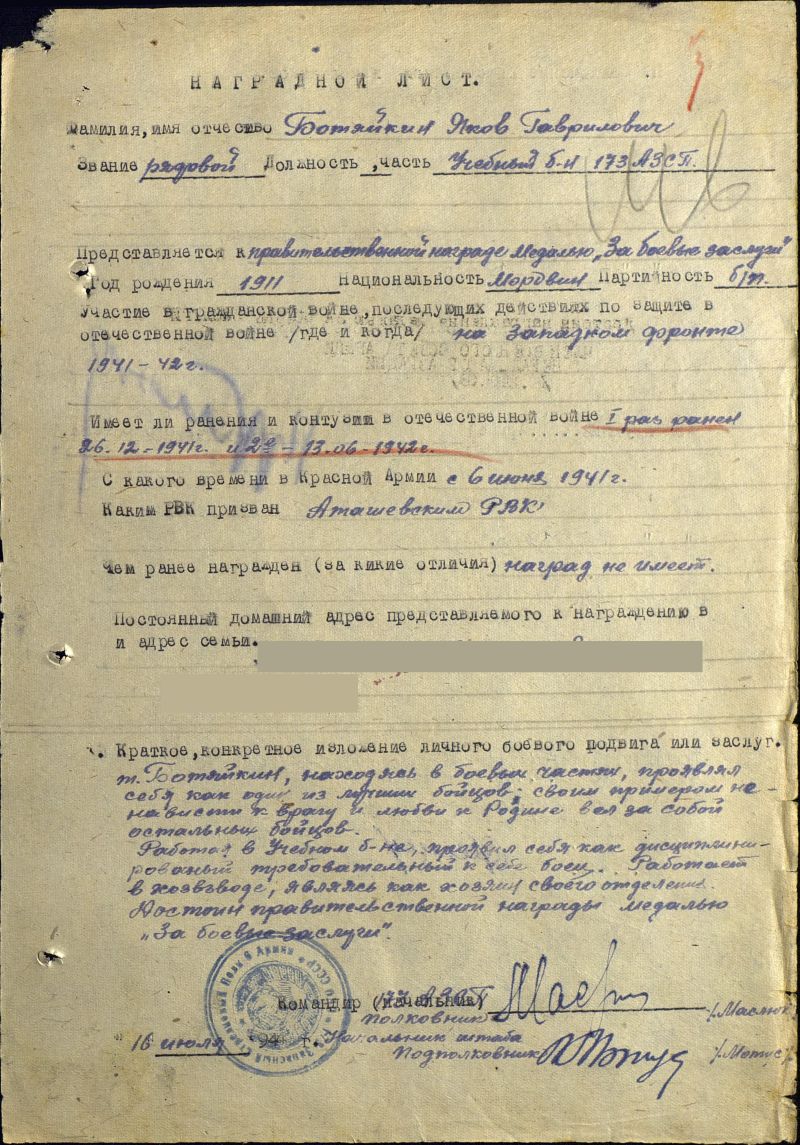 НАГРАДНОЙ ЛИСТ.
Фамилия, имя отчество Ботяйкин Яков Гаврилович
Звание рядовой Должность, часть Учебный б-н 173 АЗСП.
Представляется к правительственной награде медалью „За боевые заслуги"
Год рождения 1911 Национальность Мордвин Партийность б/п.
Участие в гражданской войне, последующих действиях по защите в
отечественной войне /где и когда/ на Западном фронте
1941-42г.
Имеет ли ранения и контузии в отечественной войне 1 раз ранен
26.12-1941г. и 2й - 13.06-1942г.
С какого времени в Красной Армии с 6 июня 1941г.
Каким РВК призван Аташевским РВК
Чем ранее награжден (за кикие отличия) наград не имеет.
Постоянный домашний адрес представляемого к награждению в
и адрес семьи.
Краткое, конкретное изложение личного боевого подвига или заслуг.
т. Ботяйкин, находясь в боевых частях, проявлял
себя как один из лучших бойцов; своим примером не-
нависти к врагу и любви к Родине вел за собой
остальных бойцов.
Работая в Учебном б-не, проявил себя как дисциплини-
рованый требовательный к себе боец. Работает
в хозвзводе, являясь как хозяин своего отделения.
Достоин правительственной награды медалью
„За боевые заслуги".
Командир (начальник)
Полковник /Маслюк
16 июля 194 г. Начальник штаба
Подполковник /Мотус/